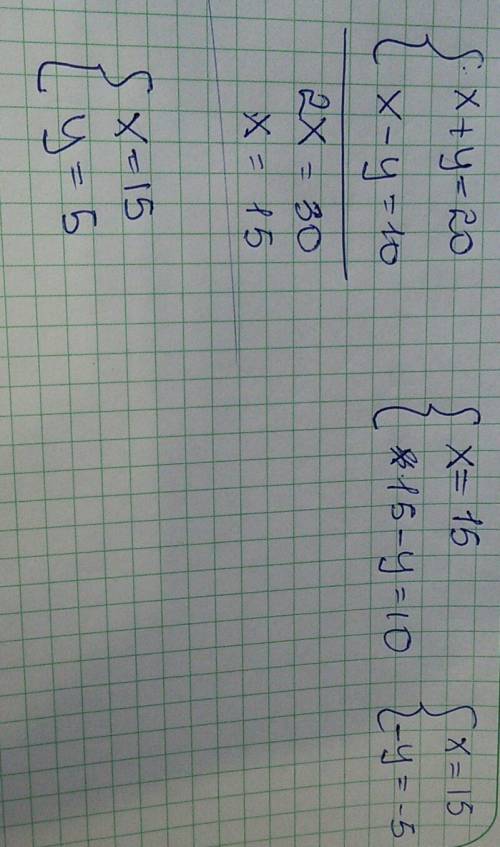 x+y=20
x-y=10
2x=30
x=15
x=15
15-y=10
x=15
-y=-5
x=15
y=5